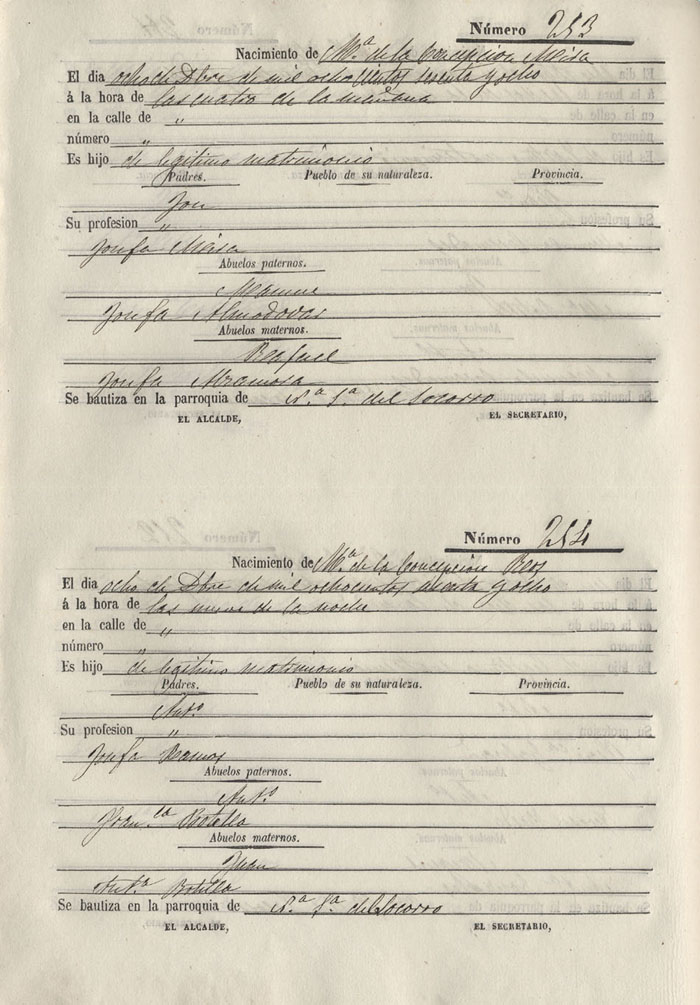 Número 253
Nacimiento de Mª de la Concepcion Meisa
El dia ocho de Dbre de mil ochocientos sesenta y ocho
á la hora de las cuatro de la mañana
en la calle de "
número "
Es hijo de legitimo matrimonio
Padres. Pueblo de su naturaleza. Provincia.
Su profesion "
Josefa Meisa
Abuelos paternos.
Josefa Almodovar
Abuelos maternos.
Rafael
Josefa
Se bautiza en la parroquia de Nª Sª del Socorro
EL ALCALDE, EL SECRETARIO,
Número 254
Nacimiento de Mª de la Concepcion
El dia ocho de Dbre de mil ochocientos sesenta y ocho
á la hora de las nueve de la noche
en la calle de "
número "
Es hijo de legitimo matrimonio
Padres. Pueblo de su naturaleza. Provincia.
Antº
Su profesion "
Josefa Ramos
Abuelos paternos.
Antº
Franca Botella
Abuelos maternos.
Juan
Antª Botella
Se bautiza en la parroquia de Nª Sª del Socorro
EL ALCALDE, EL SECRETARIO,